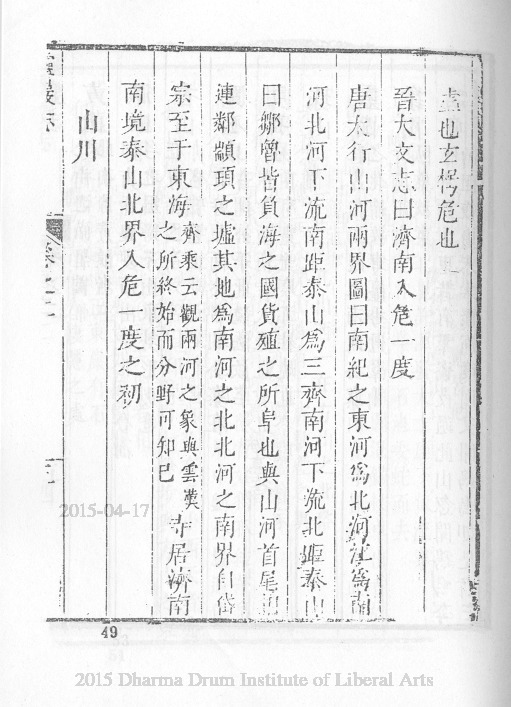 虛也玄枵危也
晉天文志曰濟南入危一度
唐太行山河兩界圖曰南紀之東河爲北河江爲南
河北河下流南距泰山爲三齊南河下流北距泰山
曰鄒魯皆負海之國貨殖之所阜也與山河首尾相
連鄰顓頊之墟其地爲南河之北北河之南界自岱
宗至于東海齊乘云觀兩河之象與雲漢之所終始而分野可知已寺居濟南
南境泰山北界入危一度之初
山川
2015-04-17
49
2015 Dharma Drum Institute of Liberal Arts